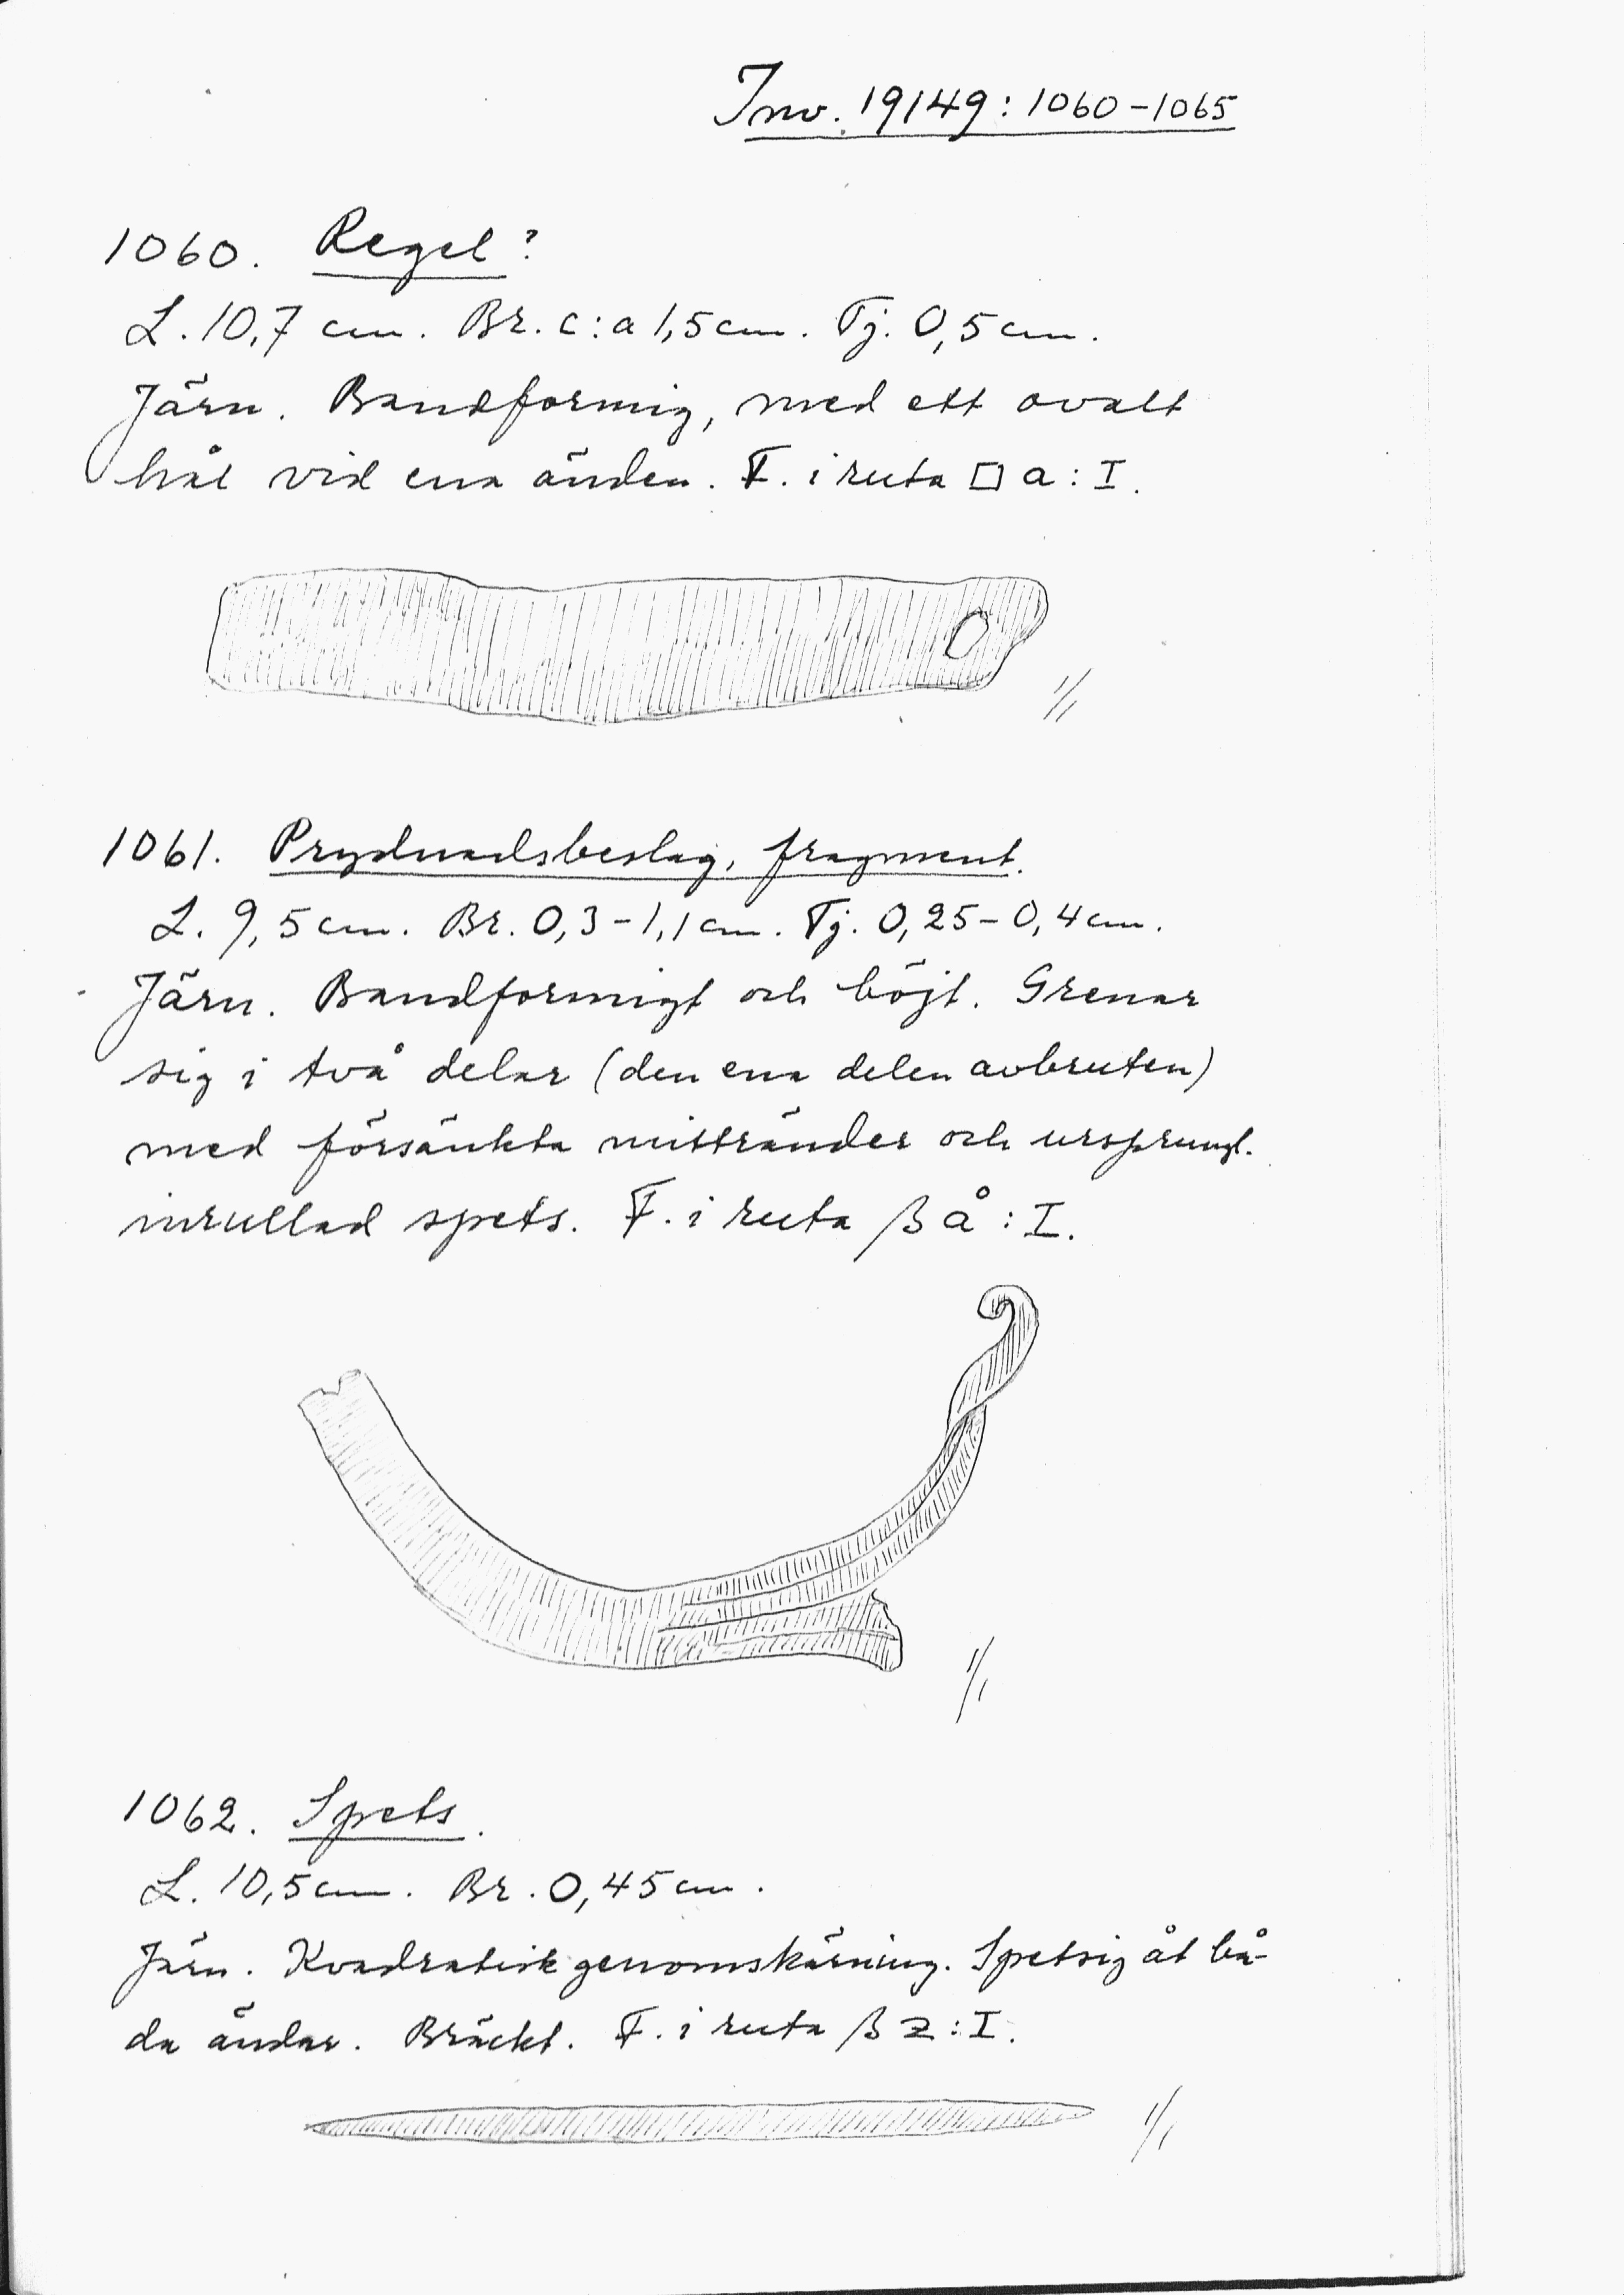 Inv. 19149: 1060-1065
1060. Regel?
L. 10,7 cm. Br. c:a 1,5 cm. Tj. 0,5 cm.
Järn. Bandformig, med ett ovalt
hål vid ena änden. F. i ruta □ a: I.
1/1
1061. Prydnadsbeslag, fragment.
L. 9,5 cm. Br. 0,3-1,1 cm. Tj. 0,25-0,4 cm.
Järn. Bandformigt och böjt. Grenar
sig i två delar (den ena delen avbruten)
med försänkta mittränder och ursprungl.
inrullad spets. F. i ruta ß å: I.
1/1
1062. Spets.
L. 10,5 cm. Br. 0,45 cm.
Järn. Kvadratisk genomskärning. Spetsig åt bå-
da ändar. Bräckt. F. i ruta ß z: I.
1/1